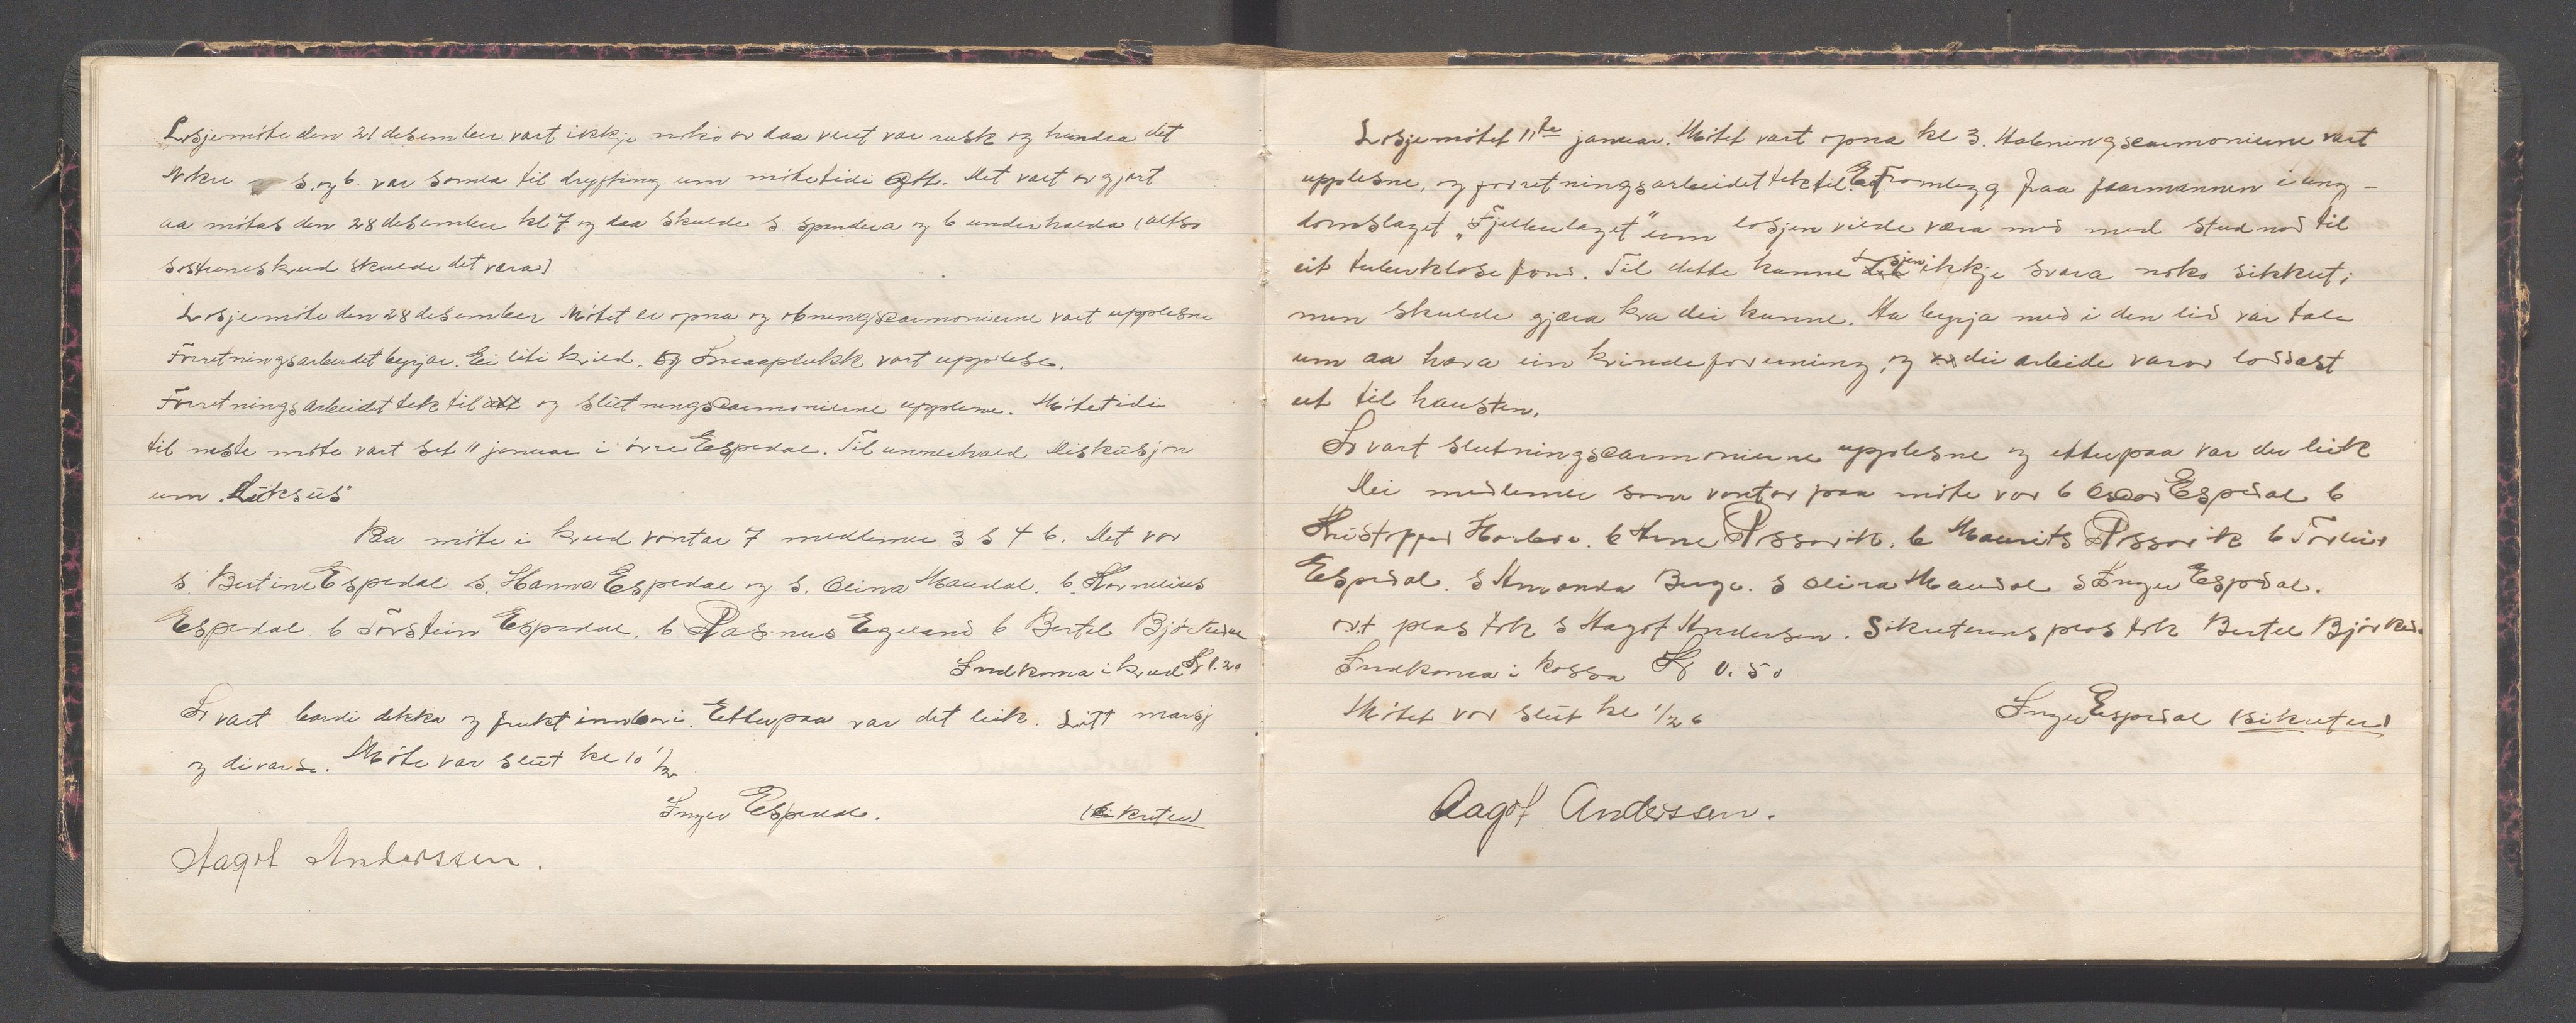 Losjemøte den 21 desember vart ikkje noko av daa veret var rusk og hindra det
Nokre s. og b. var somla til drøfting um møtetidi ogH. Det vart avgjort
aa møtas den 28 desember kl 7 og daa skulde s. spendera og b underhalda (altso
søstraneskveld skulde det væra)
Losjemøte den 28 desember Møtet er opna og opningsceremonierne vart upplesne
Forretningsarbeidet byrjar. Ei liti kvild. og Smaaplukk vart upplese.
Forretningsarbeidet tek til att og slutningsceremonierne upplesne. Møtetidi
til neste møte vart set 11 januar i øvre Espedal. Til underhald Diskusjon
um "Luksus"
Paa møte i kveld vantar 7 medlemer 3 s 4 b. Det var
s. Bertine Espedal s. Hanna Espedal og s. Olina Maudal. b. Kornelius
Espedal b Torstein Espedal, b Rasmus Egeland b Bertel Bjørkedal
Innkoma i kveld Kr 1.20
So vart bordi dekka og frukt innbori. Etterpaa var det leik. Litt marsj
og divarse. Møte var slut kl 10 1/2
Inger Espedal. (sikretær)
Aagot Anderssen.
Losjemøtet 11te januar. Møtet vart opna kl 3. Aabningsceremonierne vart
upplesne, og forretningsarbeidet tek til. Eit framlegg fraa formannen i ung-
domslaget "Fjellenlaget" um losjen vilde væra med med studnad til
eit tuberklose fond. Til dette kunne losjen ikkje svara noko sikkert;
men skulde gjæra kva dei kunne. Aa byrja med i den tid var tale
um aa hava ein kvindeforening, og dei arbeide varor loddast
ut til hausten.
So vart slutningsceremonierne upplesne og etterpaa var der leik
Dei medlemer som vantar paa møte var b Oscar Espedal b
Kristoffer Haaland. b Arne Røssavik. b Maurits Røssavik b Torleir
Espedal. s Amanda Berge. s Olina Maudal s Inger Espedal.
ovt plas tok s Aagot Andersen. Sikreterens plas tok Bertel Bjørkedal
Innkoma i kassa Kr 0.50
Møtet var slut kl 1/2 6
Inger Espedal (sikretær)
Aagot Anderssen.